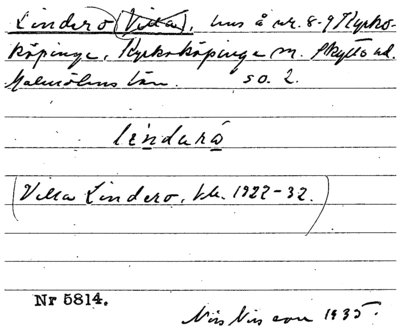 Lindero (Villa), hus å nr. 8-9 Kyrko-
köpinge, Kyrkoköpinge sn. Skytts hd.
Malmöhus län. so. 2.
lindarå
(Villa Lindero, bl. 1922-32.)
Nr 5814.
Nils Nilsson 1935.